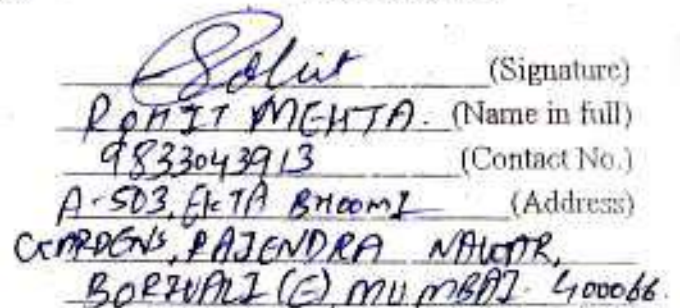 Rohit (Signature)
ROHIT MEHTA. (Name in full)
9833043913 (Contact No.)
A-503, EKTA BHOOMI (Address)
GARDENS, RAJENDRA NAGAR,
BORIVALI (E) MUMBAI- 400066.